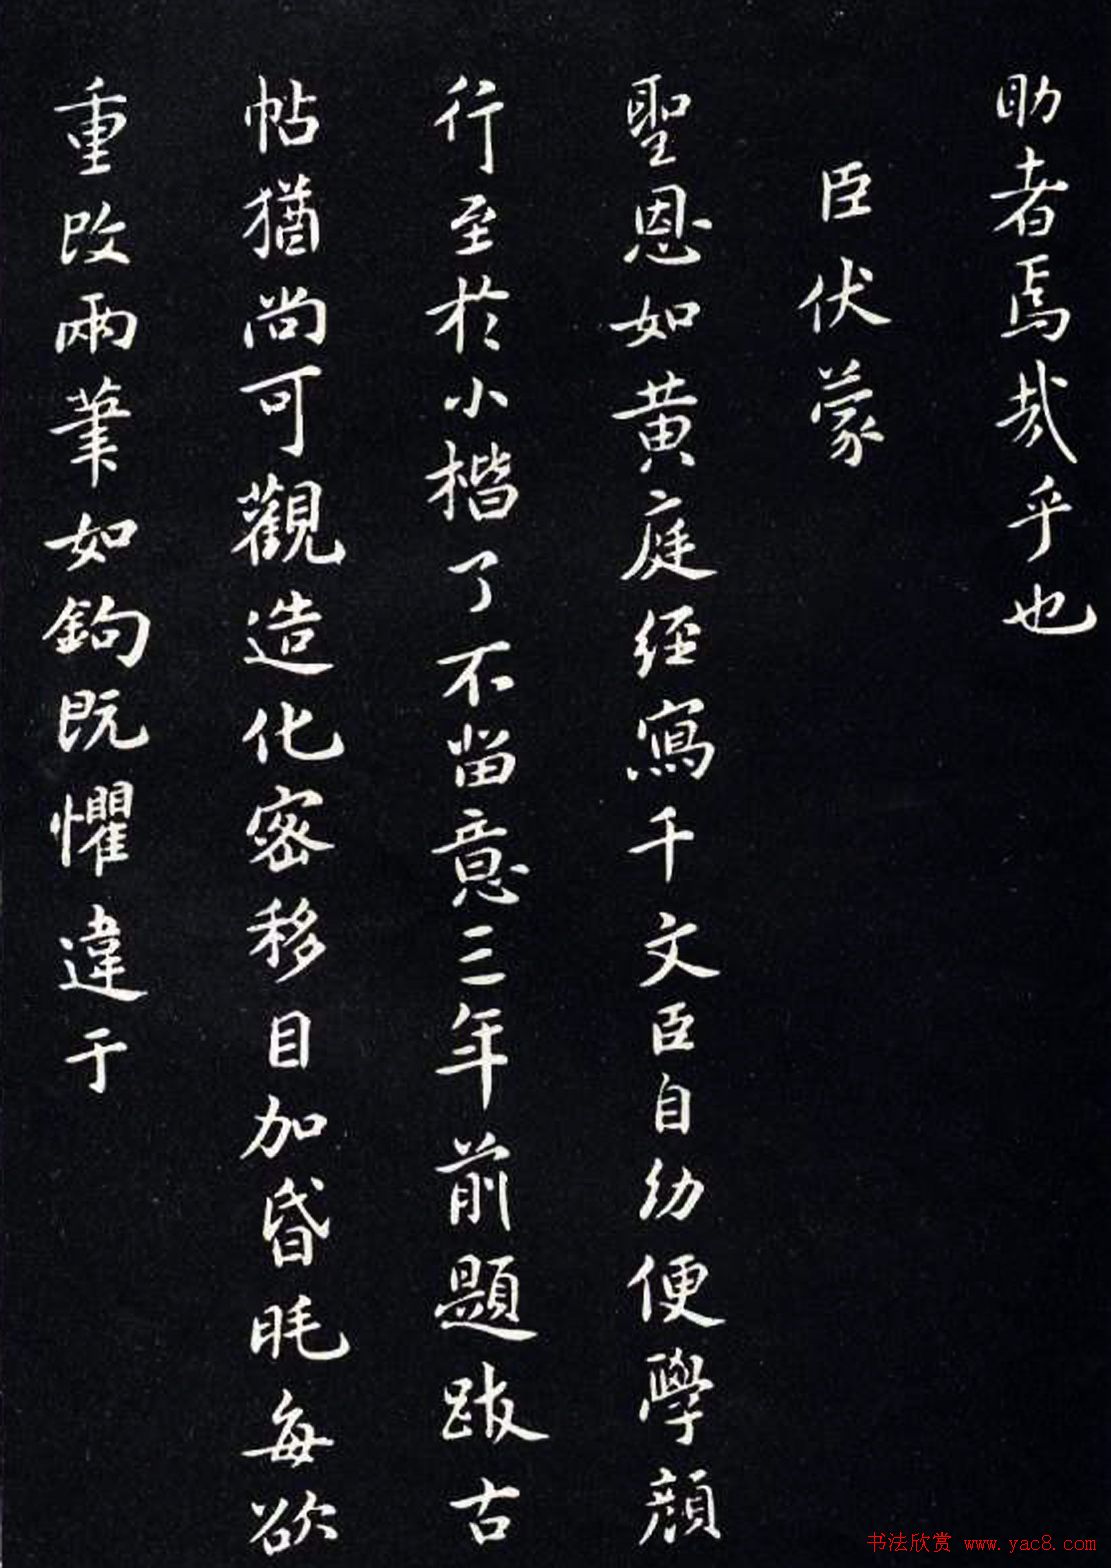 助者焉哉乎也
臣伏蒙
聖恩如黃庭經寫千文臣自幼便學顏
行至於小楷了不留意三年前題跋古
帖猶尚可觀造化密移目加昏眊每欲
重改兩筆如鉤既懼違于
书法欣赏 www.yac8.com